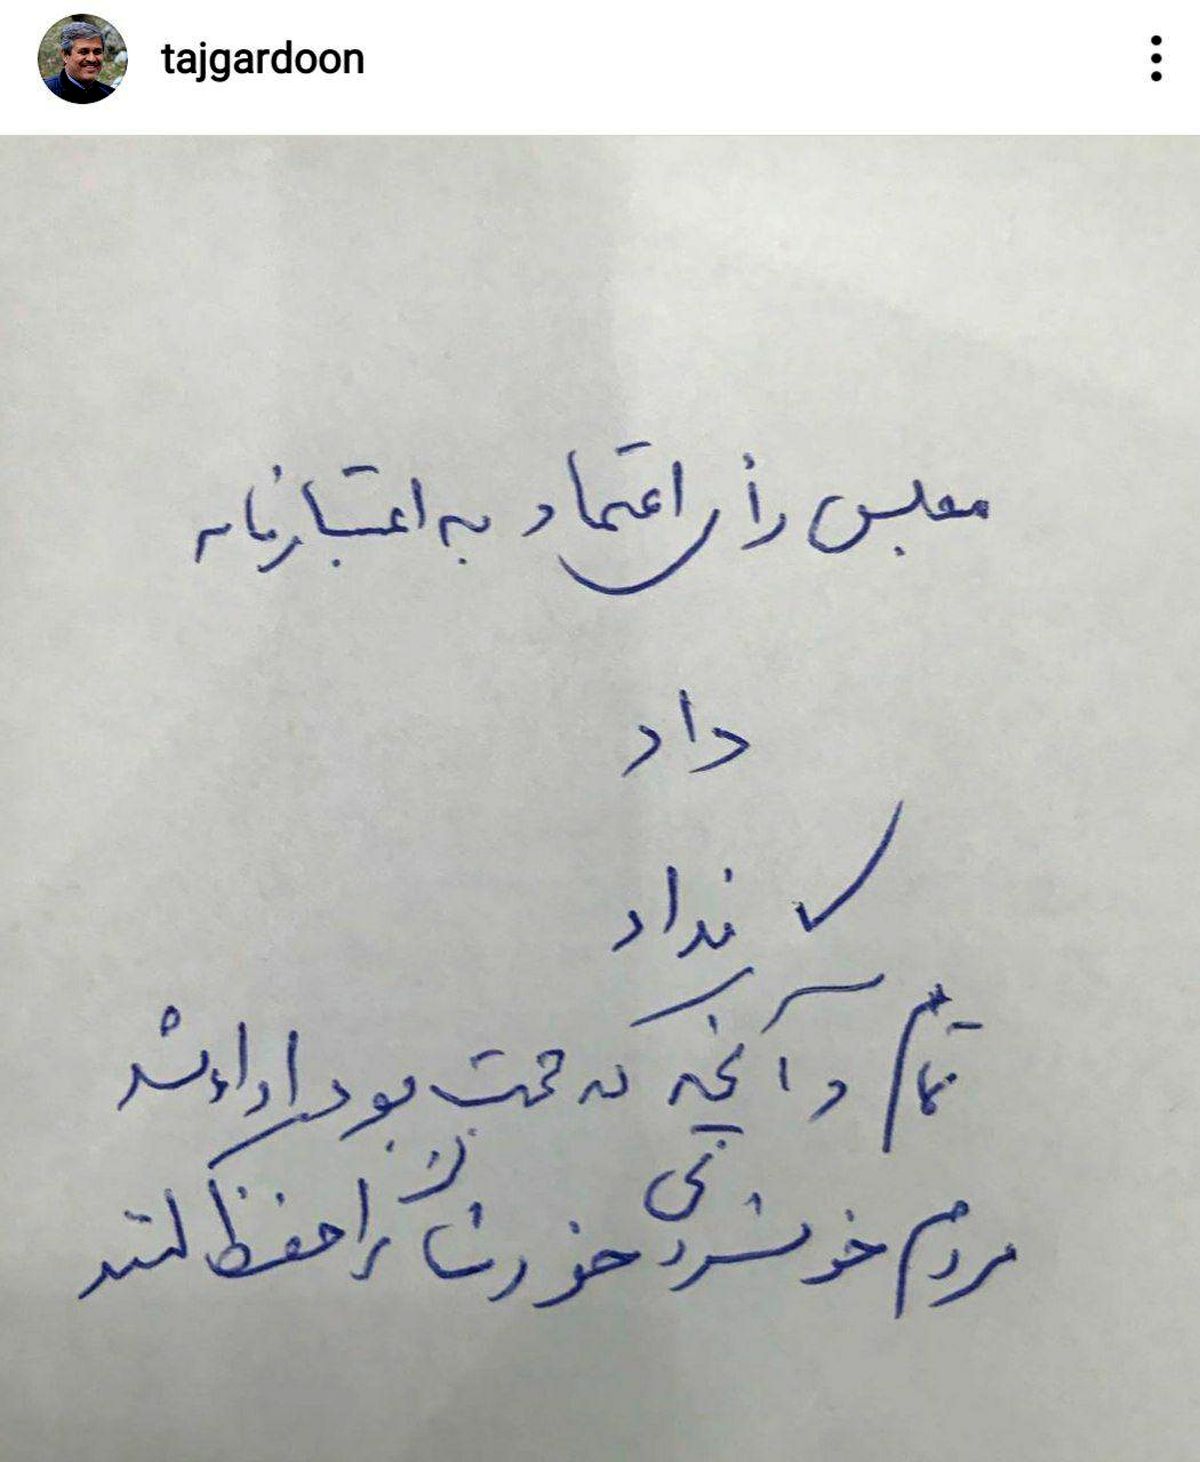 tajgardoon
مجلس رأی اعتماد به اعتبارنامه
داد
نداد
تمام و آنچه که تهمت بود ادا شد
مردم خونسردی خودشان را حفظ کنند